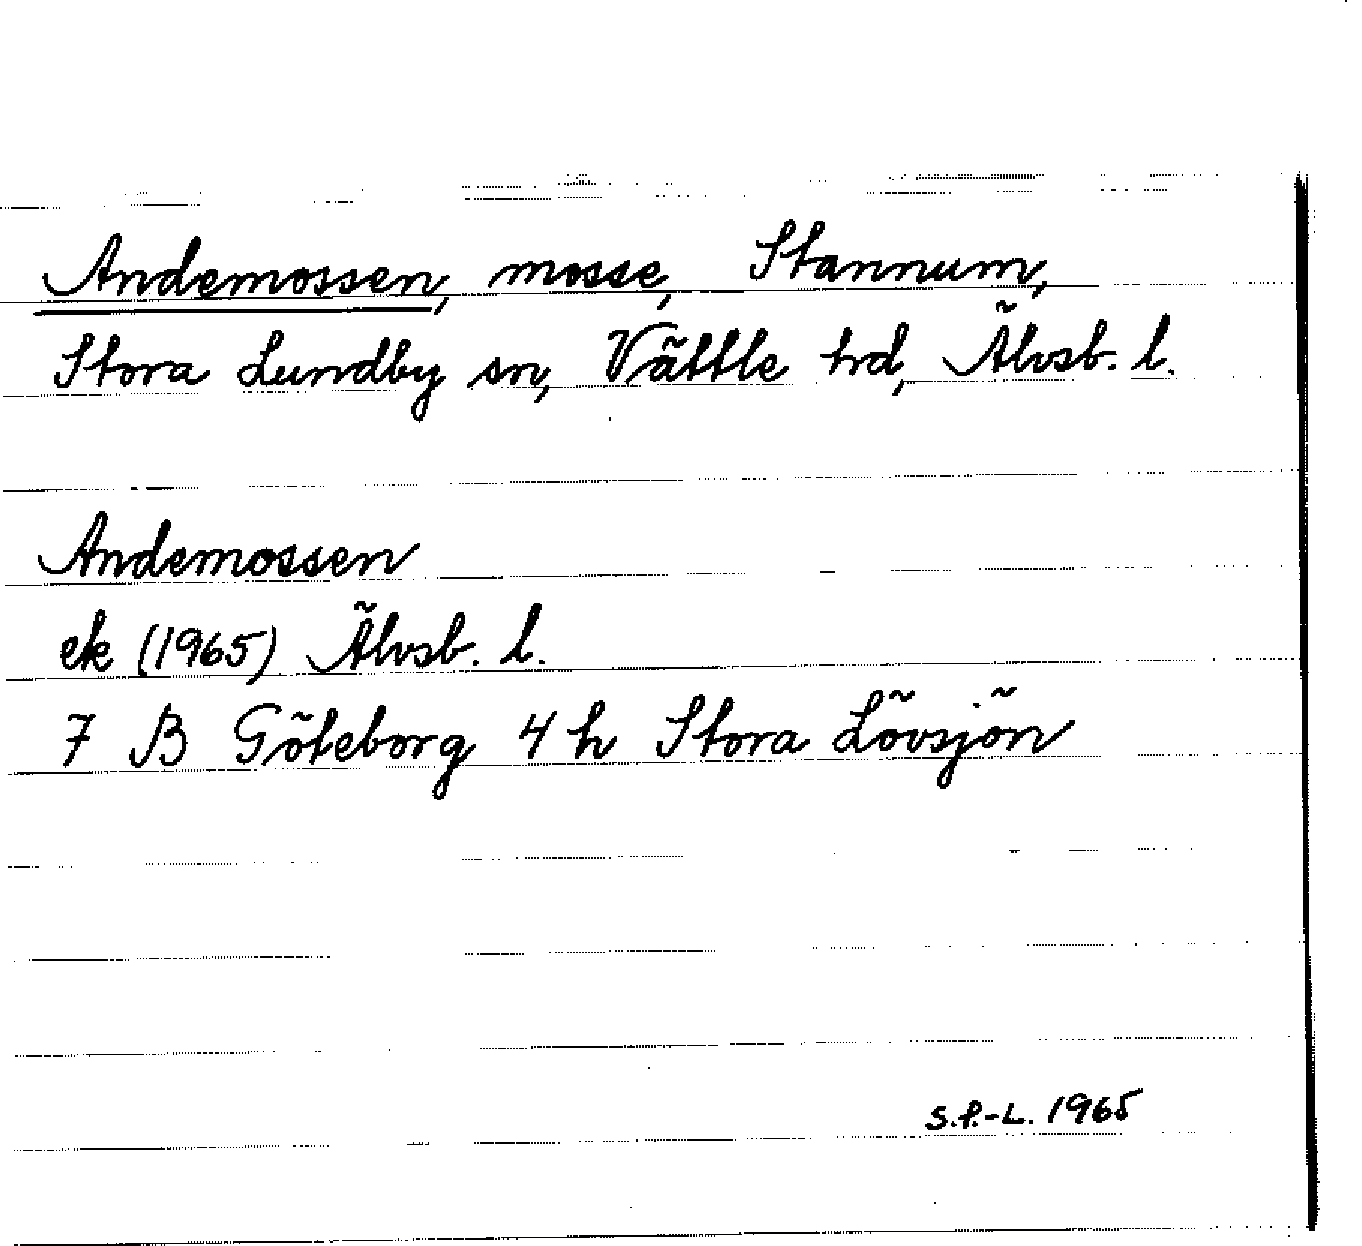 Andemossen, mosse, Stannum,
Stora Lundby sn, Vättle hd, Älvsb. l.
Andemossen
ek (1965) Älvsb. l.
7 B Göteborg 4 h Stora Lövsjön
S.P.-L. 1965